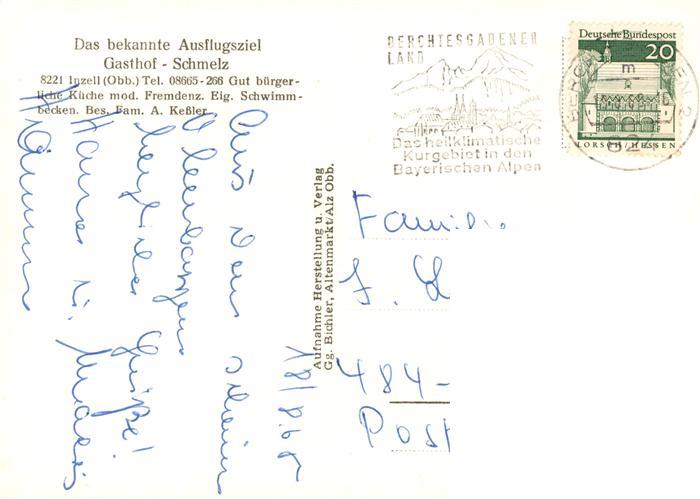 Das bekannte Ausflugsziel
Gasthof - Schmelz
8221 Inzell (Obb.) Tel. 08665-266 Gut bürger-
liche Küche mod. Fremdenz. Eig. Schwimm-
becken. Bes. Fam. A. Keßler
BERCHTESGADENER
LAND
Das heilklimatische
Kurgebiet in den
Bayerischen Alpen
Deutsche Bundespost
20
LORSCH/HESSEN
Aufnahme Herstellung u. Verlag
Gg. Bichler, Altenmarkt/Alz Obb.
18/8.68
Aus dem
herzliche Grüße!
Hannes u.
484-
Post